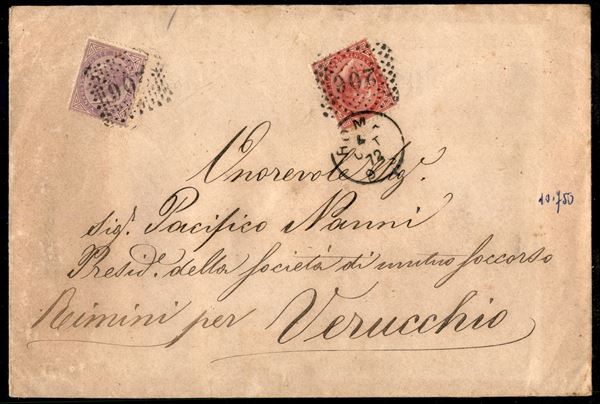 206
ROMA
72
Onorevole Sigr.
Sigr. Pacifico Nanni
Presidte. della Società di mutuo soccorso
Rimini per Verucchio
10.750